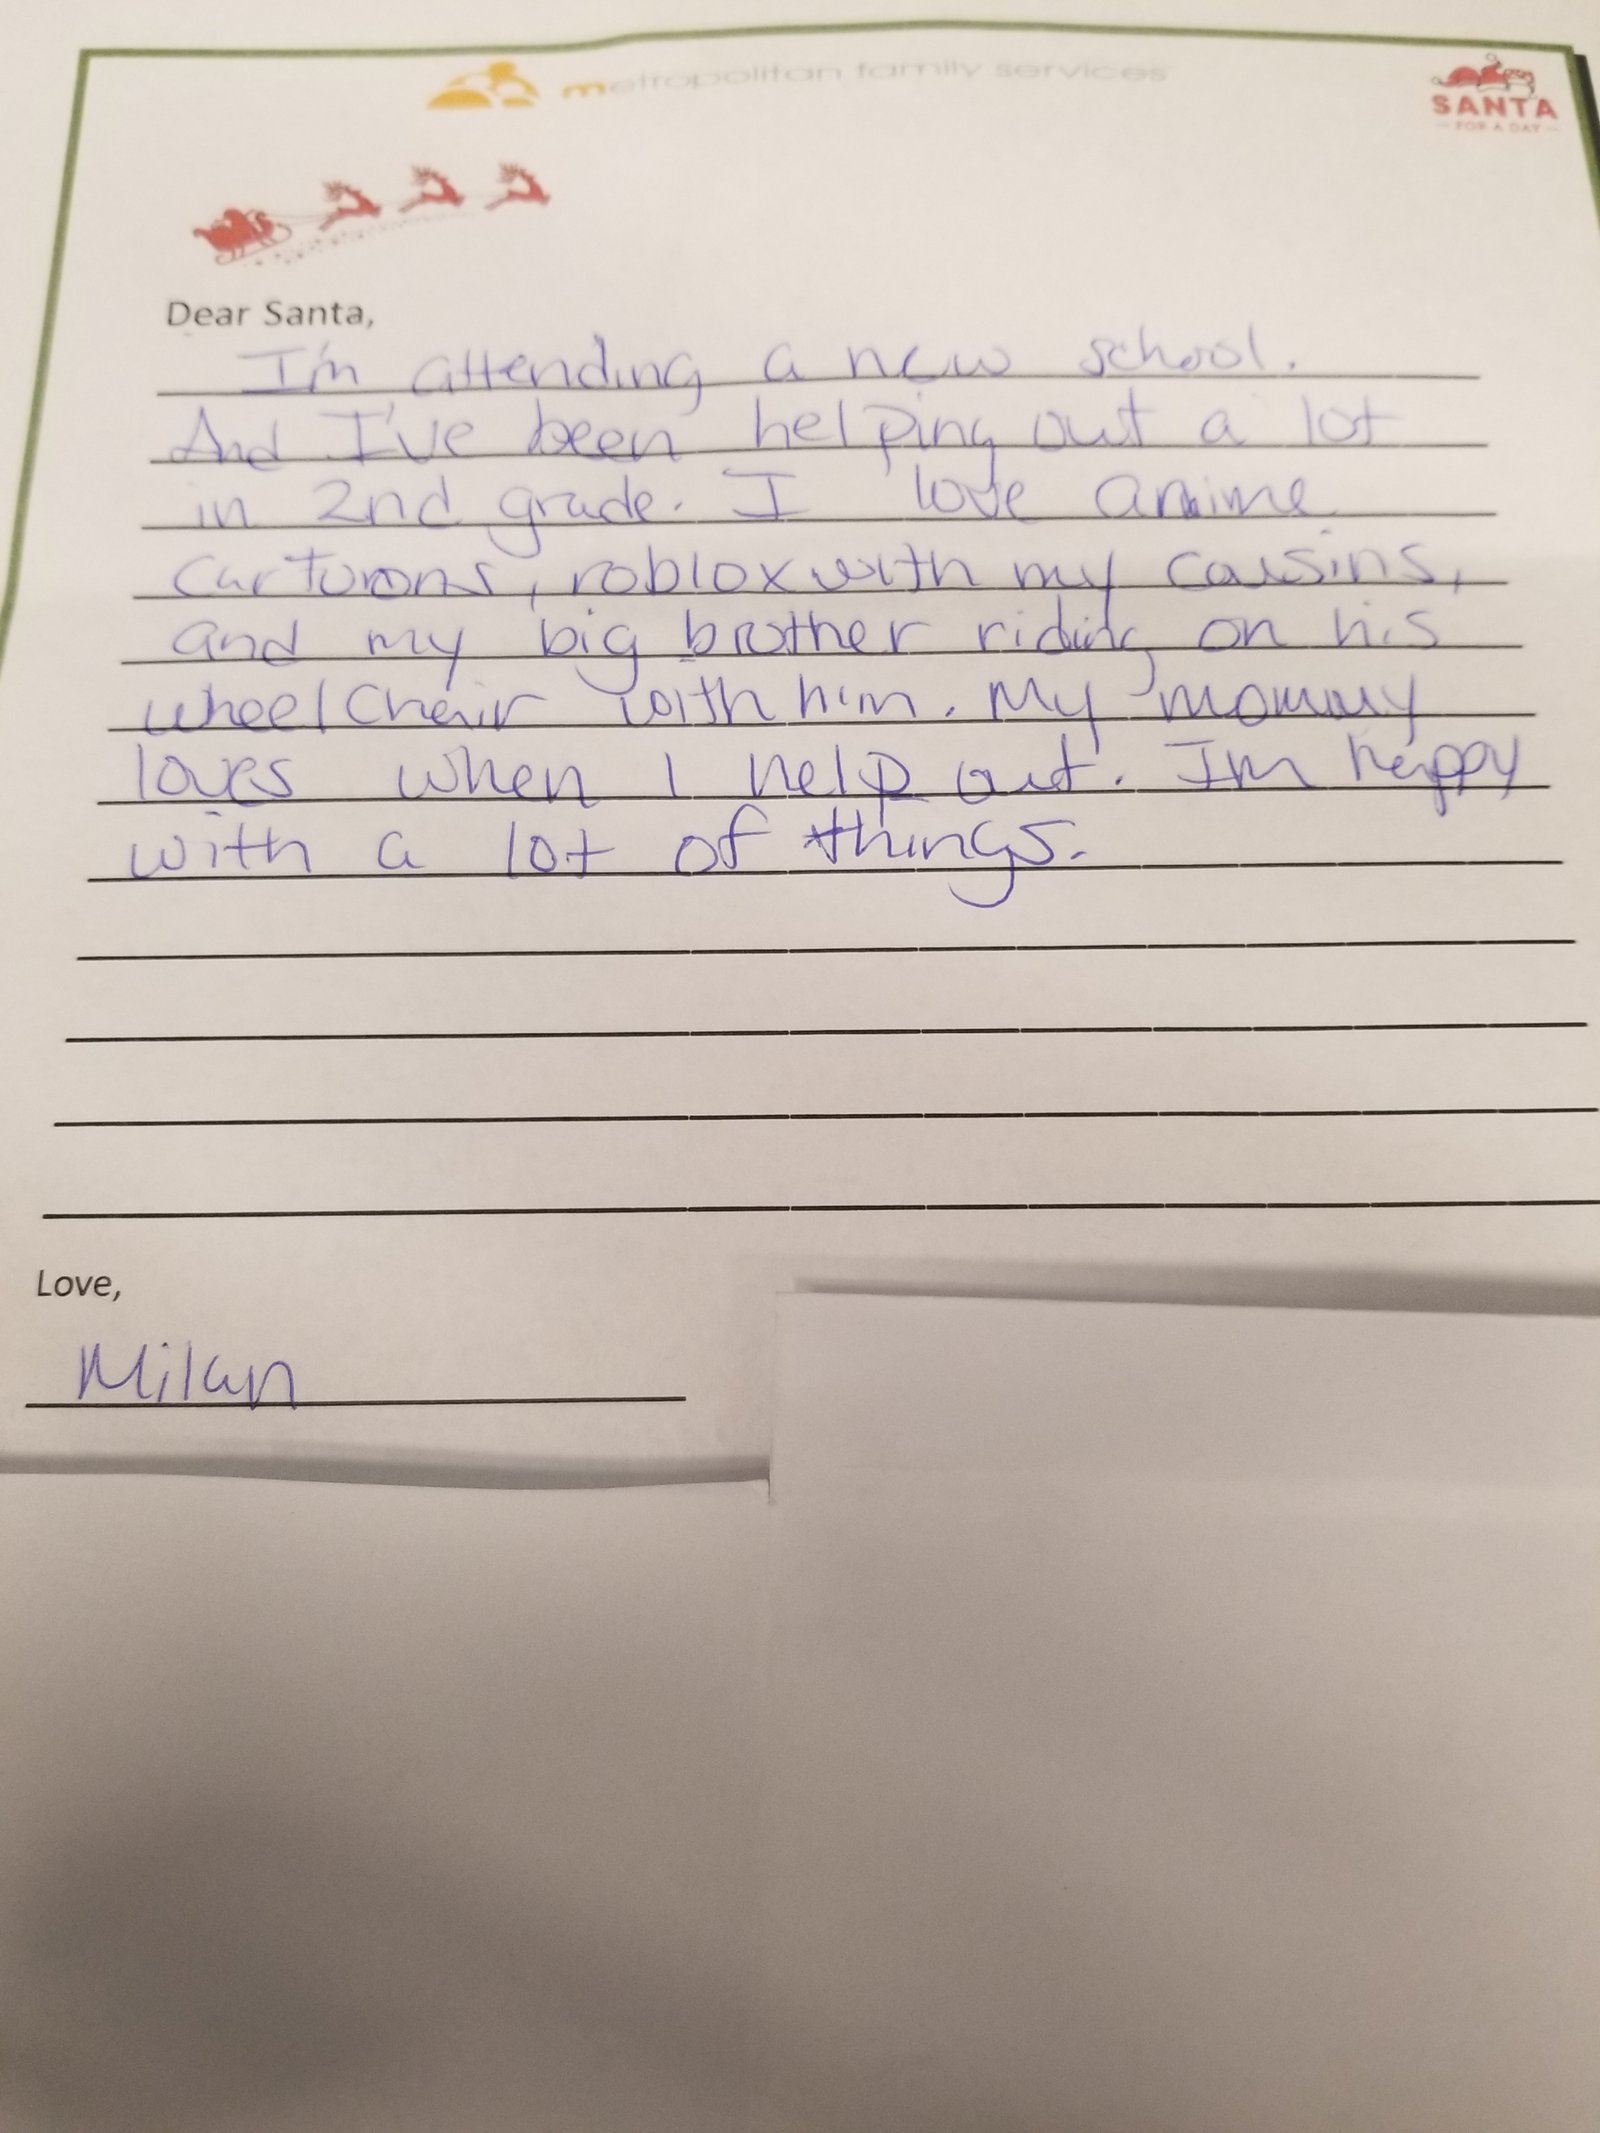 metropolitan family services
SANTA
FOR A DAY
Dear Santa,
I'm attending a new school.
And I've been helping out a lot
in 2nd grade. I love anime
cartoons, roblox with my cousins,
and my big brother riding on his
wheelchair with him. My mommy
loves when I help out. Im happy
with a lot of things.
Love,
Milan